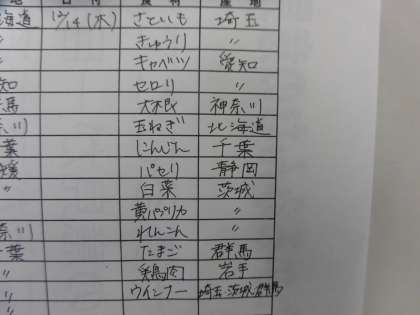 地 日付 食材 産地
海道 12/14(木) さといも 埼玉
〃 きゅうり 〃
〃 キャベツ 愛知
知 セロリ 〃
馬 大根 神奈川
川 玉ねぎ 北海道
葉 にんじん 千葉
媛 パセリ 静岡
〃 白菜 茨城
黄パプリカ 〃
奈川 れんこん 〃
葉 たまご 群馬
〃 鶏肉 岩手
〃 ウインナー 埼玉 茨城 群馬
〃